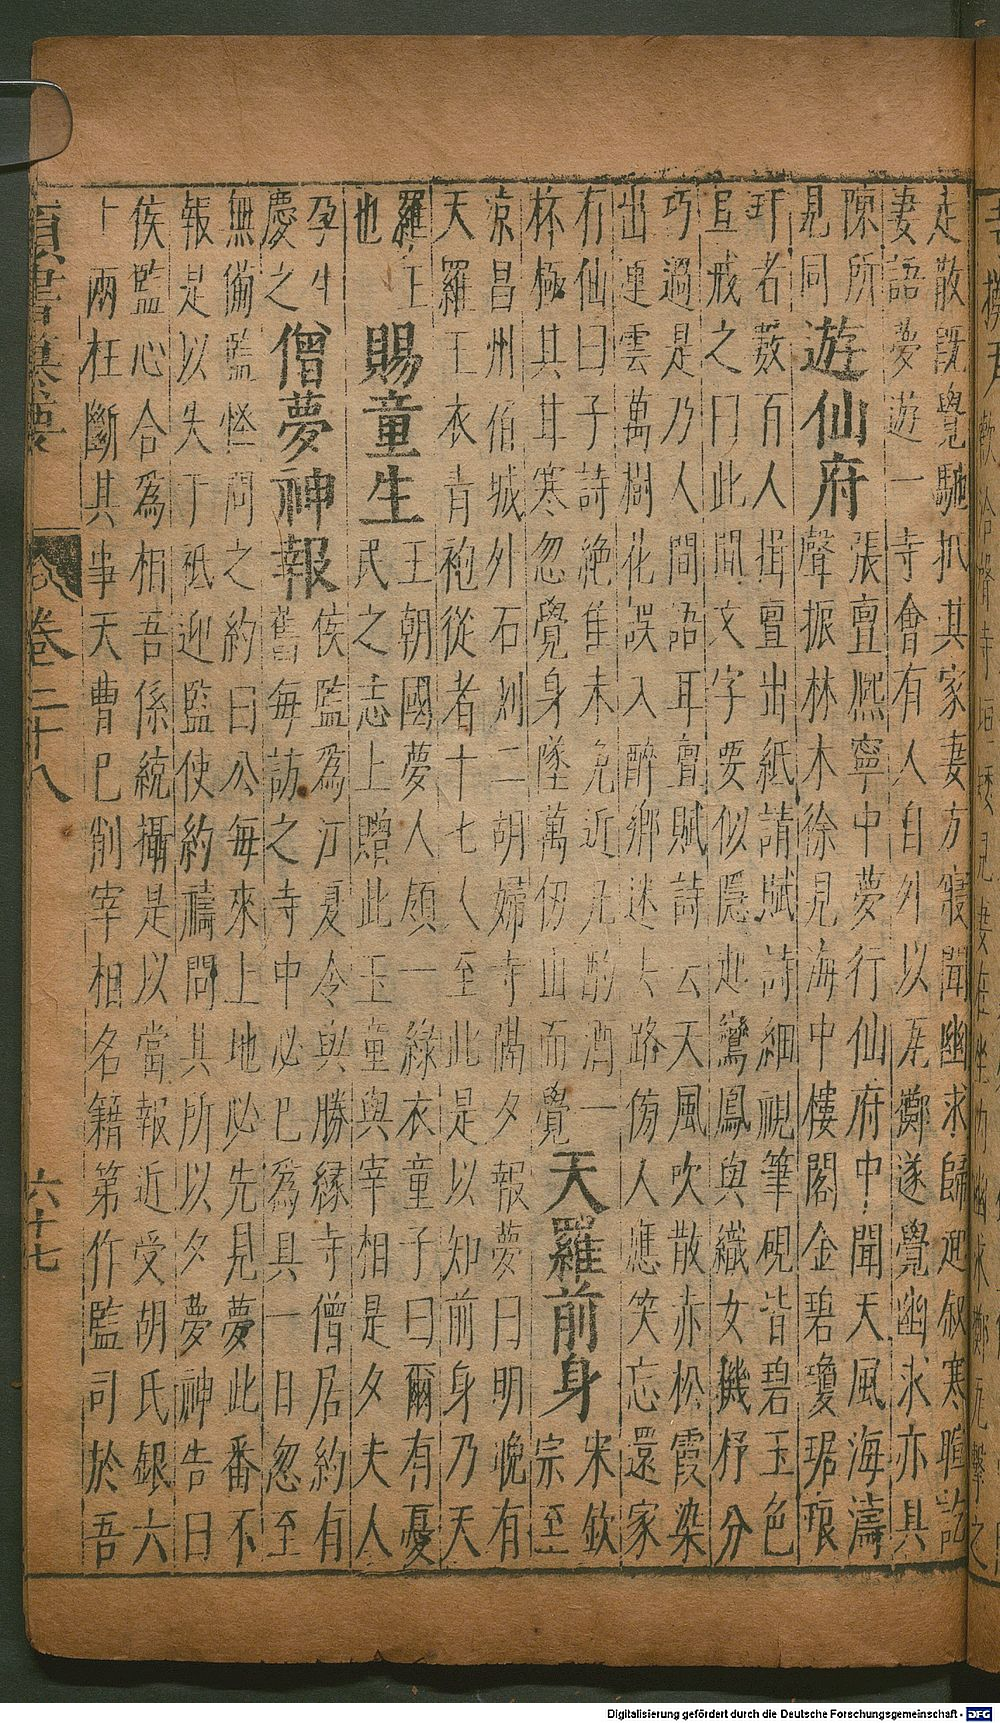 走散既覺馳扒其家妻方寢聞幽求歸迎敍寒暄訖
妻語夢遊一寺會有人自外以瓦擲遂覺幽求亦具
陳所
見同
遊仙府
張亶熙寧中夢行仙府中聞天風海濤
聲振林木徐見海中樓閣金碧瓊琚琅
玕者薮百人揖亶出紙請賦詩細視筆硯皆碧玉色
且戒之曰此間文字要似隱起鸞鳳與織女機杼分
巧過是乃人間語耳亶賦詩云天風吹散赤松霞染
出連雲萬樹花誤入醉鄉迷去路傍人應笑忘還家
有仙曰子詩絕隹未免近凡酌酒一
杯極其甘寒忽覺身墜萬仞山而覺
天羅前身
宋欽
宗至
京昌州伯城外石刻二胡婦寺隔夕報夢曰明晚有
天羅王衣青袍從者十七人至此是以知前身乃天
羅王
也
賜童生
王朝國夢人領一綠衣童子曰爾有憂
民之志上贈此玉童與宰相是夕夫人
孕生
慶之
僧夢神報
侯監爲江夏令與勝緣寺僧居約有
舊每訪之寺中必已爲具一日忽至
無備監怪問之約曰公每來上地必先見夢此番不
報是以失于祗迎監使約禱問其所以夕夢神告曰
侯監心合爲相吾係統攝是以當報近受胡氏銀六
十兩枉斷其事天曹已削宰相名籍第作監司於吾
類書纂要
卷二十八
六十七
Digitalisierung gefördert durch die Deutsche Forschungsgemeinschaft - DFG